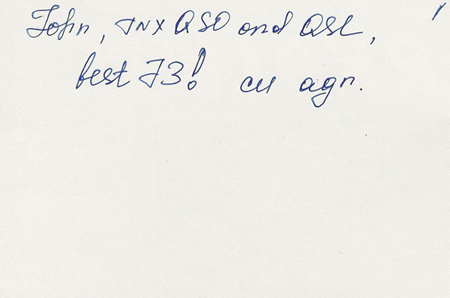 John, TNX QSO and QSL,
best 73! cu agn.